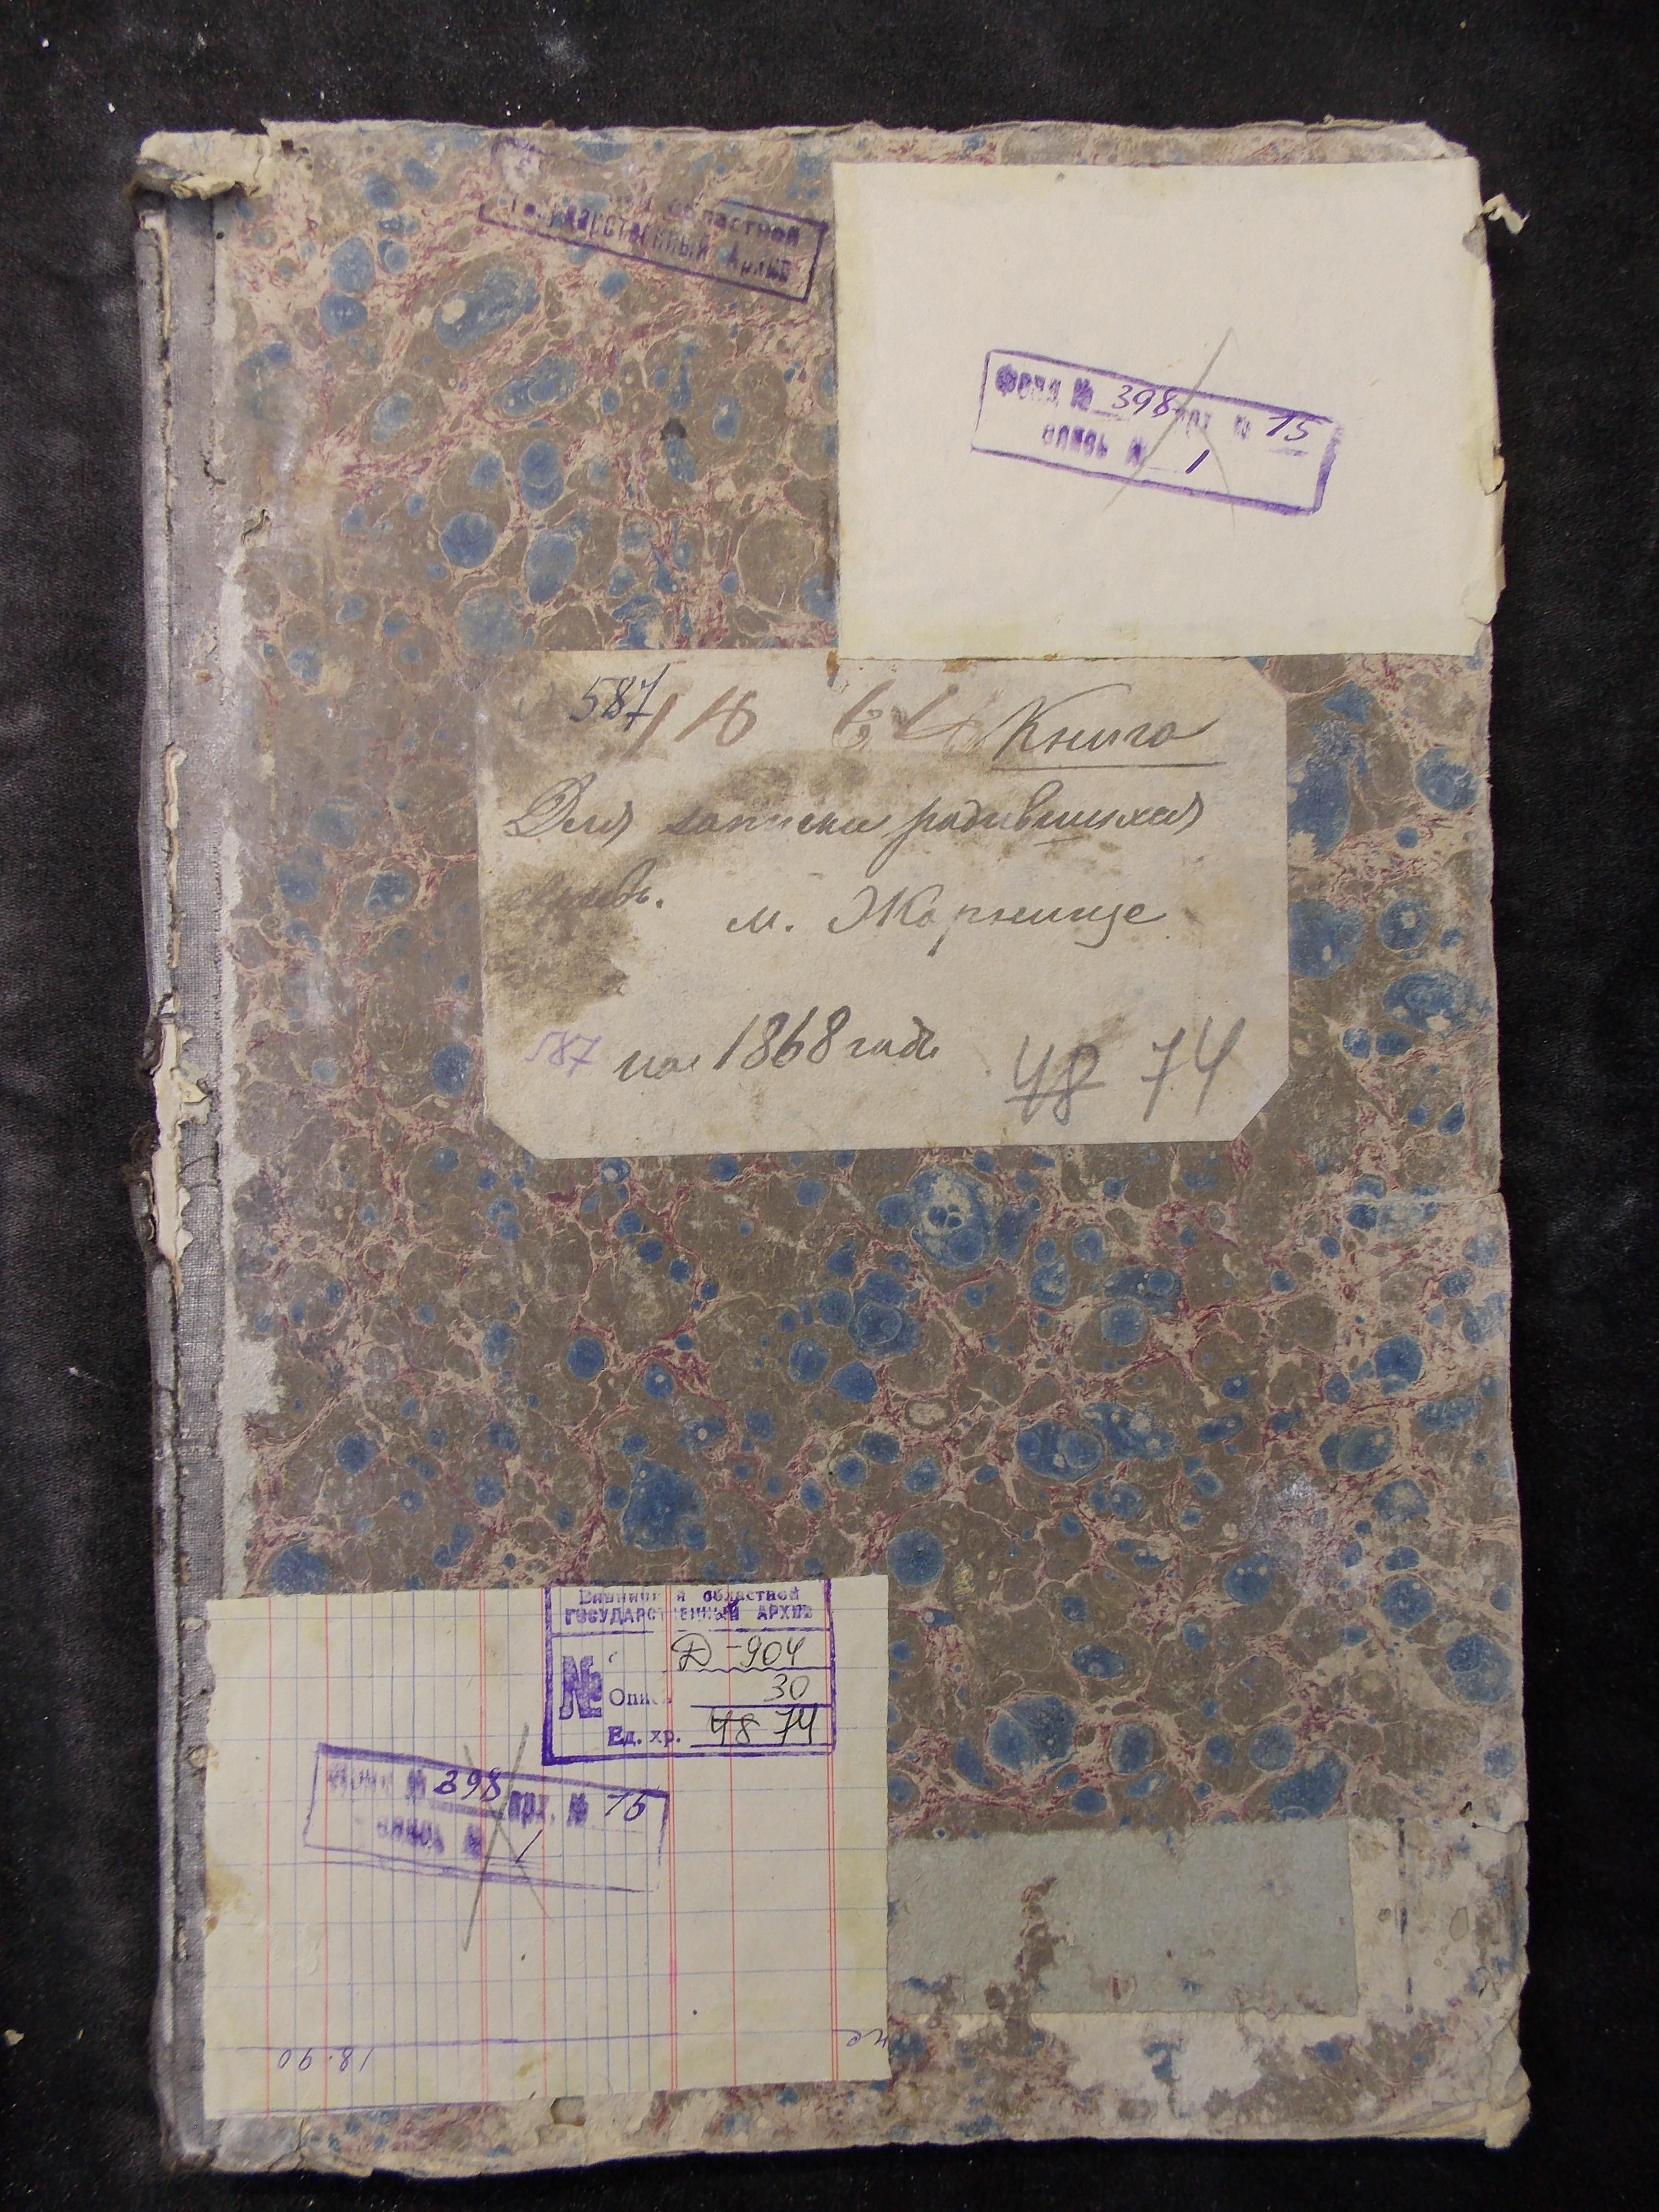 областной
Государственный Архив
Фонд № 398 арх № 15
опись № 1
587
Книга
Для записки родившихся
евреевъ.
м. Жорнище
587 на 1868 годъ
48 74
областной
ГОСУДАРСТВЕННЫЙ АРХИВ
№ Д-904
Опис 30
Ед. хр. 48 74
№ 398 арх. № 15
опись № 1
18.90